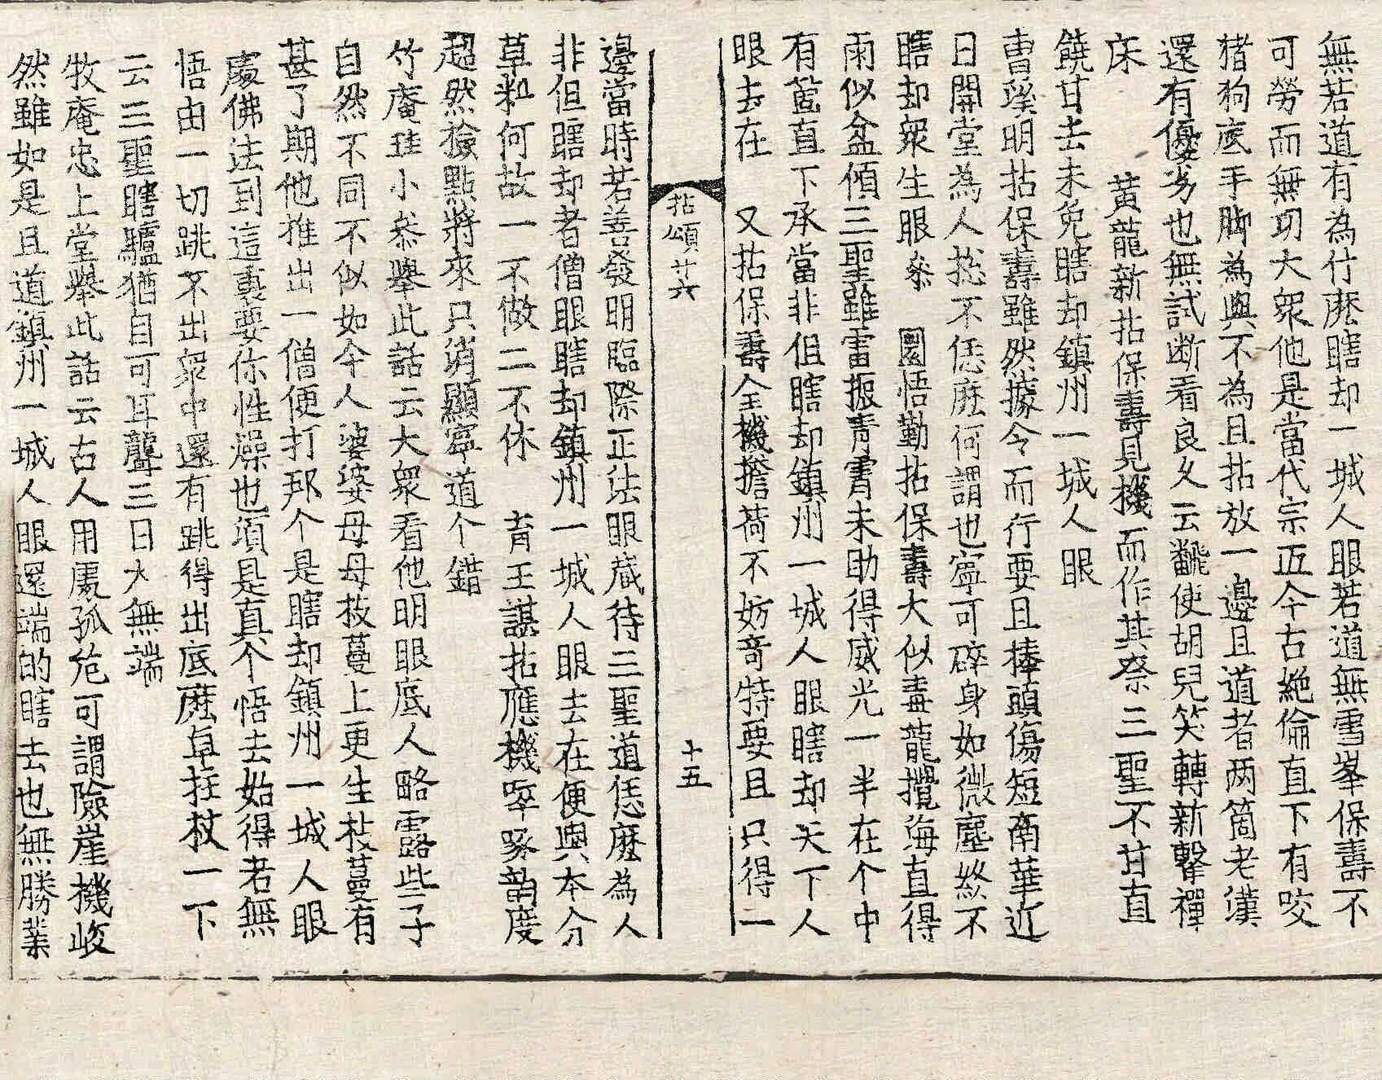 無若道有為什麽瞎却一城人眼若道無雪峯保壽不
可勞而無功大衆他是當代宗匠今古絶倫直下有咬
猪狗底手脚為與不為且拈放一邊且道者两箇老漢
還有優劣也無試断看良久云飜使胡兒笑轉新擊禪
床 黃龍新拈保壽見機而作其奈三聖不甘直
饒甘去未免瞎却鎮州一城人眼
曺溪明拈保壽雖然據令而行要且棒頭傷短南華近
日開堂為人揔不恁麽何謂也寧可碎身如微塵終不
瞎却衆生眼叅 圜悟勤拈保壽大似毒龍攪海直得
雨似盆傾三聖雖雷振靑霄未助得威光一半在个中
有箇直下承當非但瞎却鎮州一城人眼瞎却天下人
眼去在 又拈保壽全機擔荷不妨竒特要且只得一
拈頌廿六 十五
邊當時若善發明臨際正法眼蔵待三聖道恁麽為人
非但瞎却者僧眼瞎却鎮州一城人眼去在便與本分
草料何故一不做二不休 育王諶拈應機啐啄韵度
超然撿點將來只消顯寧道个錯
竹庵珪小叅擧此話云大衆看他明眼底人略露些子
自然不同不似如今人婆婆母母枝蔓上更生枝蔓有
甚了期他推出一僧便打那个是瞎却鎮州一城人眼
處佛法到這裏要你性燥也須是真个悟去始得若無
悟由一切跳不出衆中還有跳得出底麽卓拄杖一下
云三聖瞎驢猶自可耳聾三日大無端
牧庵忠上堂擧此話云古人用處孤危可謂險崖機峻
然雖如是且道鎮州一城人眼還端的瞎去也無勝業